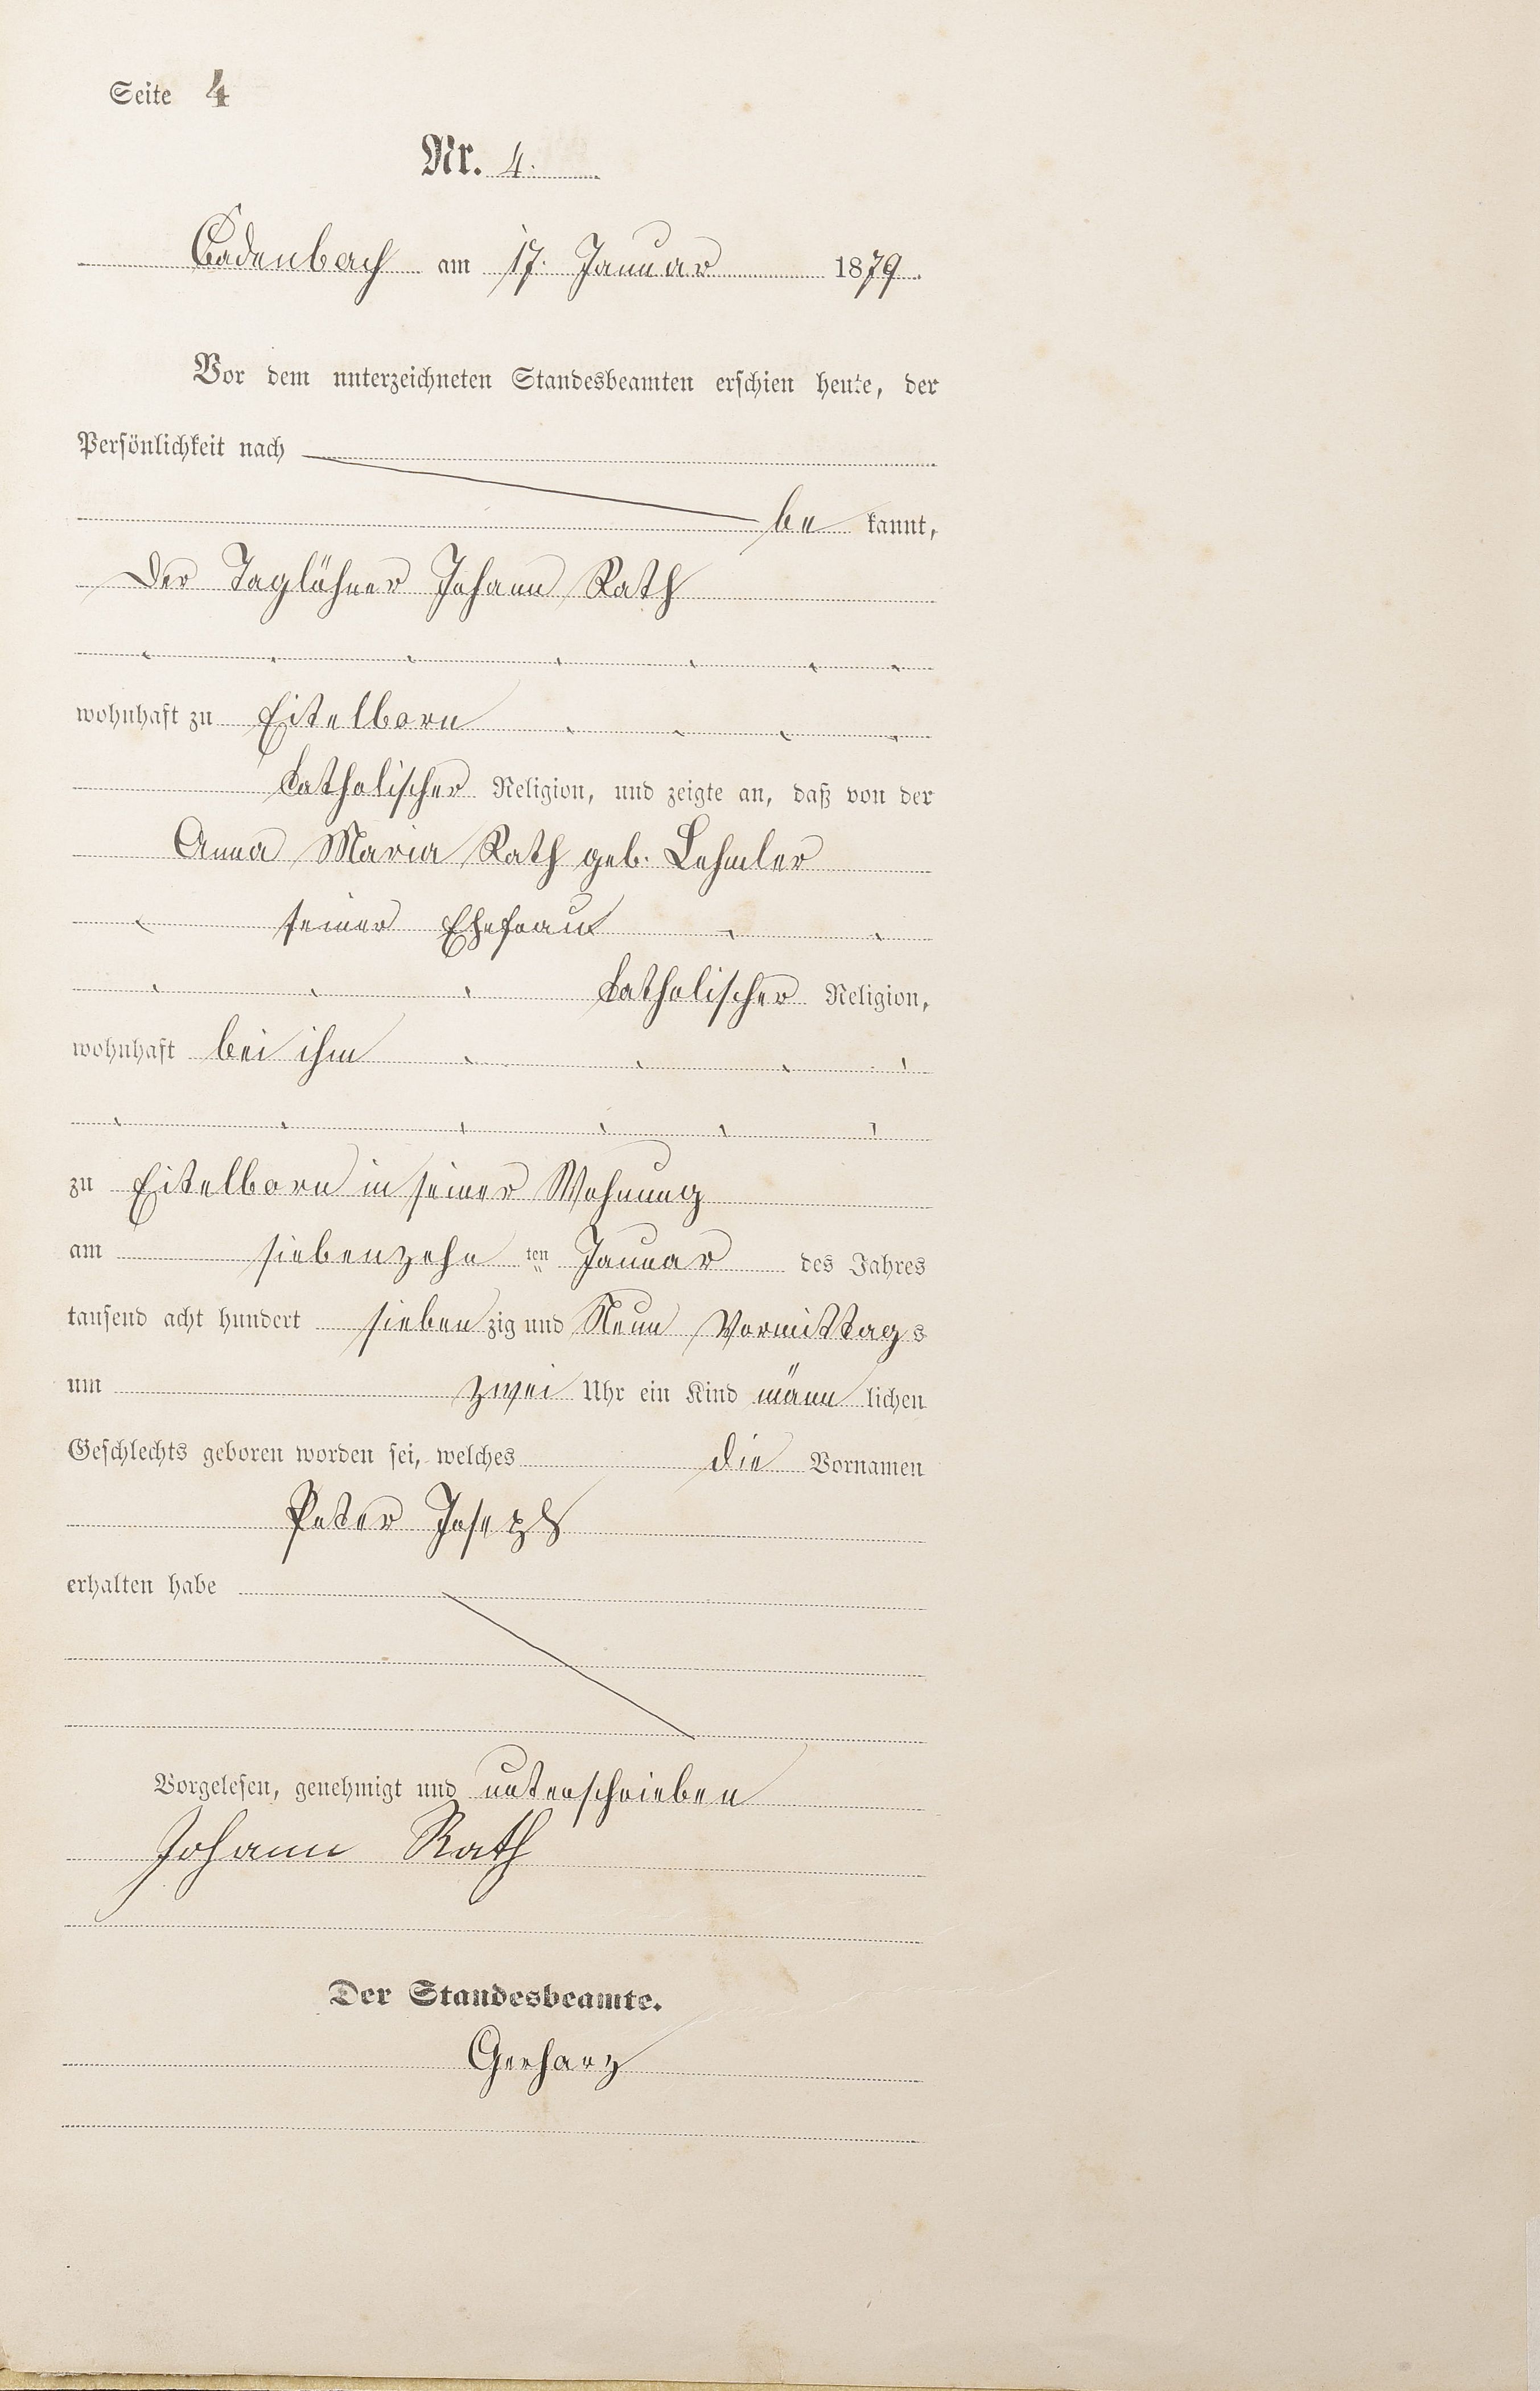 Seite 4
Nr. 4.
Cadenbach am 17. Januar 1879.
Vor dem unterzeichneten Standesbeamten erschien heute, der
Persönlichkeit nach
be kannt,
Der Taglöhner Johann Rath
wohnhaft zu Eitelborn
katholischer Religion, und zeigte an, daß von der
Anna Maria Rath geb. Lehmler
seiner Ehefrau
katholischer Religion,
wohnhaft bei ihm
zu Eitelborn in seiner Wohnung
am siebenzehn ten Januar des Jahres
tausend acht hundert sieben zig und Neun Vormittag s
um zwei Uhr ein Kind männ lichen
Geschlechts geboren worden sei, welches die Vornamen
Peter Joseph
erhalten habe
Vorgelesen, genehmigt und unterschrieben
Johann Rath
Der Standesbeamte.
Gerharz